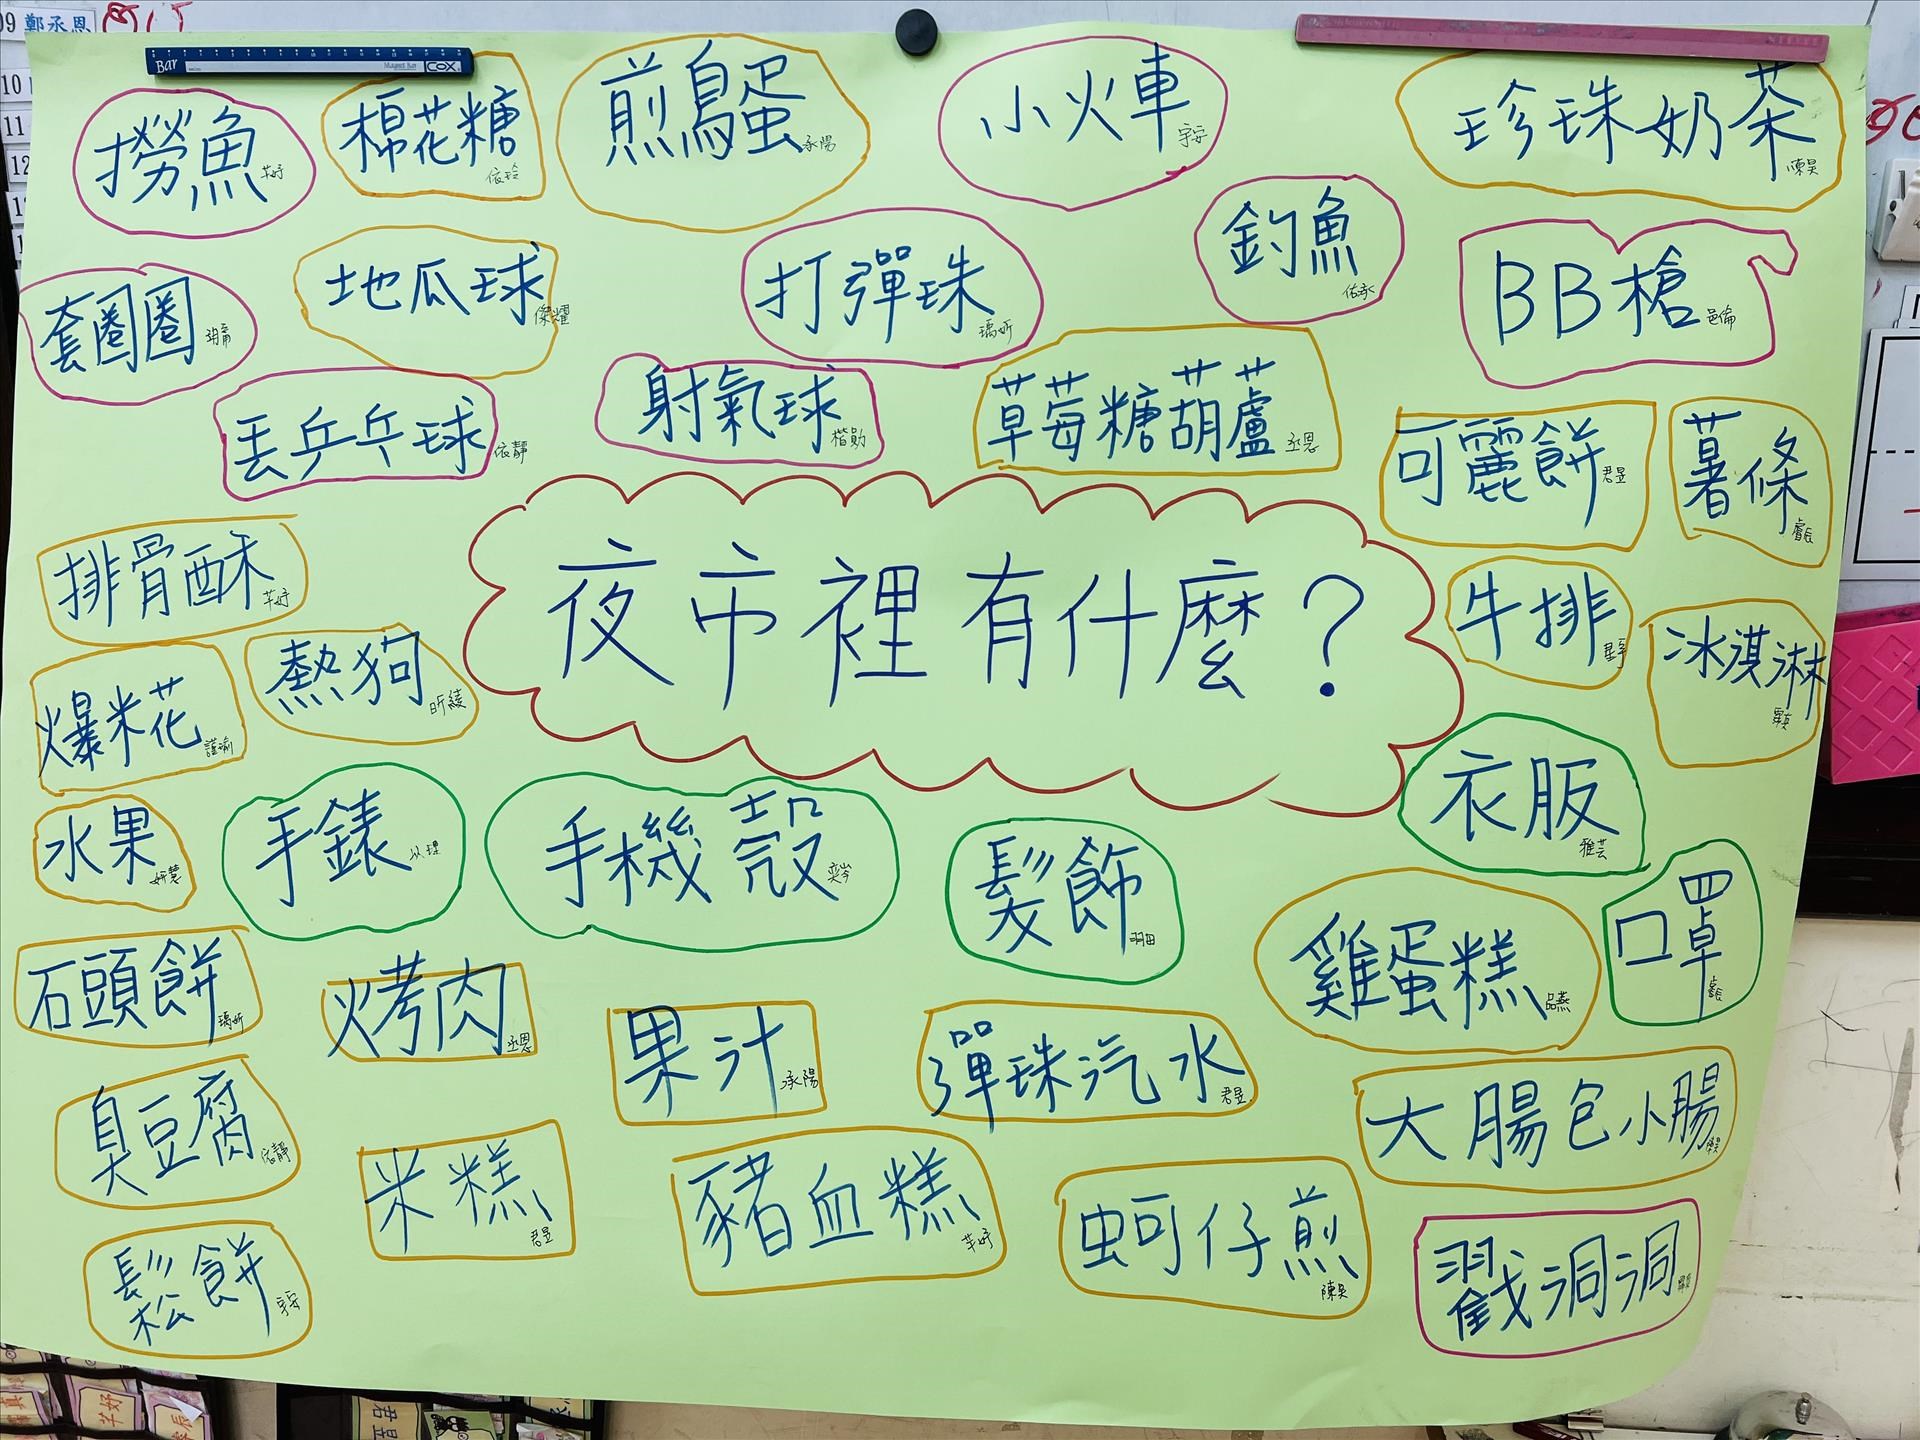 鄭丞恩
10
11
12
Bar
Magnet Bar
COX
撈魚
芊妤
棉花糖
依玲
煎鳥蛋
承陽
小火車
宇安
珍珠奶茶
陳昊
套圈圈
地瓜球
傑耀
打彈珠
瑀妡
釣魚
佑承
BB槍
邑倫
丟乒乓球
依靜
射氣球
楷勛
草莓糖葫蘆
丞恩
可麗餅
君昱
薯條
睿辰
夜市裡有什麼？
排骨酥
芊妤
爆米花
謹瑜
熱狗
昕綾
牛排
冰淇淋
水果
妍慧
手錶
以理
手機殼
奕岑
髮飾
羽田
衣服
雅芸
雞蛋糕
品燕
口罩
睿辰
石頭餅
瑀妡
烤肉
丞恩
果汁
承陽
彈珠汽水
君昱
大腸包小腸
陳昊
臭豆腐
依靜
米糕
君昱
豬血糕
芊妤
蚵仔煎
陳昊
戳洞洞
鬆餅
宇安
芊妤
君昱